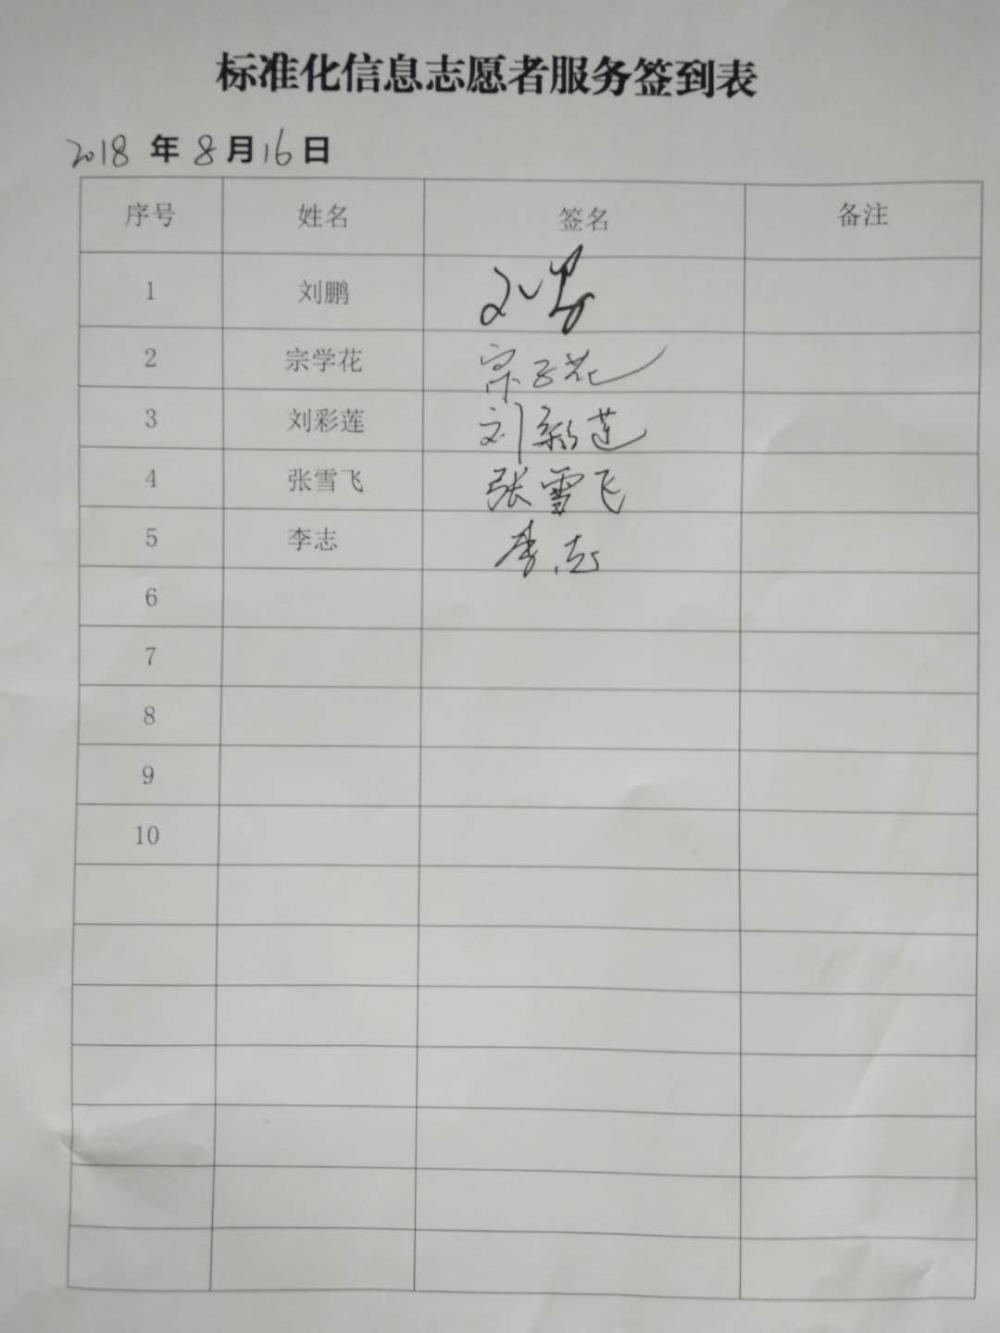 标准化信息志愿者服务签到表
2018年8月16日
序号 姓名 签名 备注
1 刘鹏
2 宗学花 宗学花
3 刘彩莲 刘彩莲
4 张雪飞 张雪飞
5 李志 李志
6
7
8
9
10